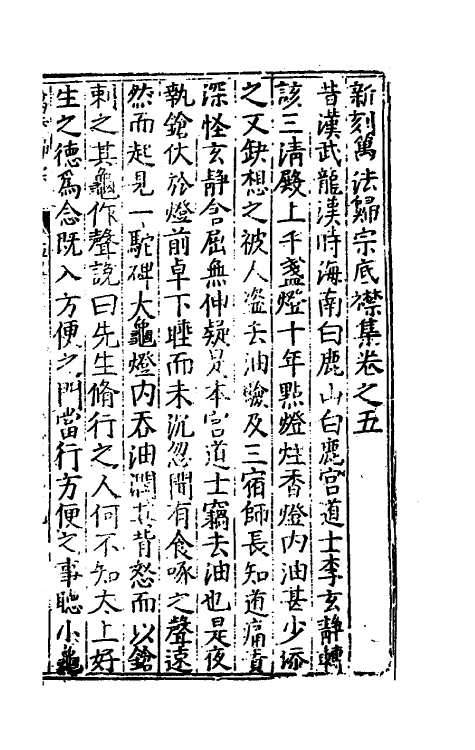 新刻萬法歸宗底襟集卷之五
昔漢武龍漢時海南白鹿山白鹿宮道士李玄靜轉
該三清殿上千盞燈十年點燈炷香燈内油甚少添
之又缺想之被人盜去油燒及三宿師長知道痛責
深怪玄靜含屈無伸疑是本宮道士竊去油也是夜
執鎗伏於燈前卓下睡而未沉忽聞有食啄之聲遠
然而起見一駝碑大龜燈内吞油潤其背怒而以鎗
刺之其龜作聲說曰先生脩行之人何不知太上好
生之德爲念既入方便之門當行方便之事聽小龜